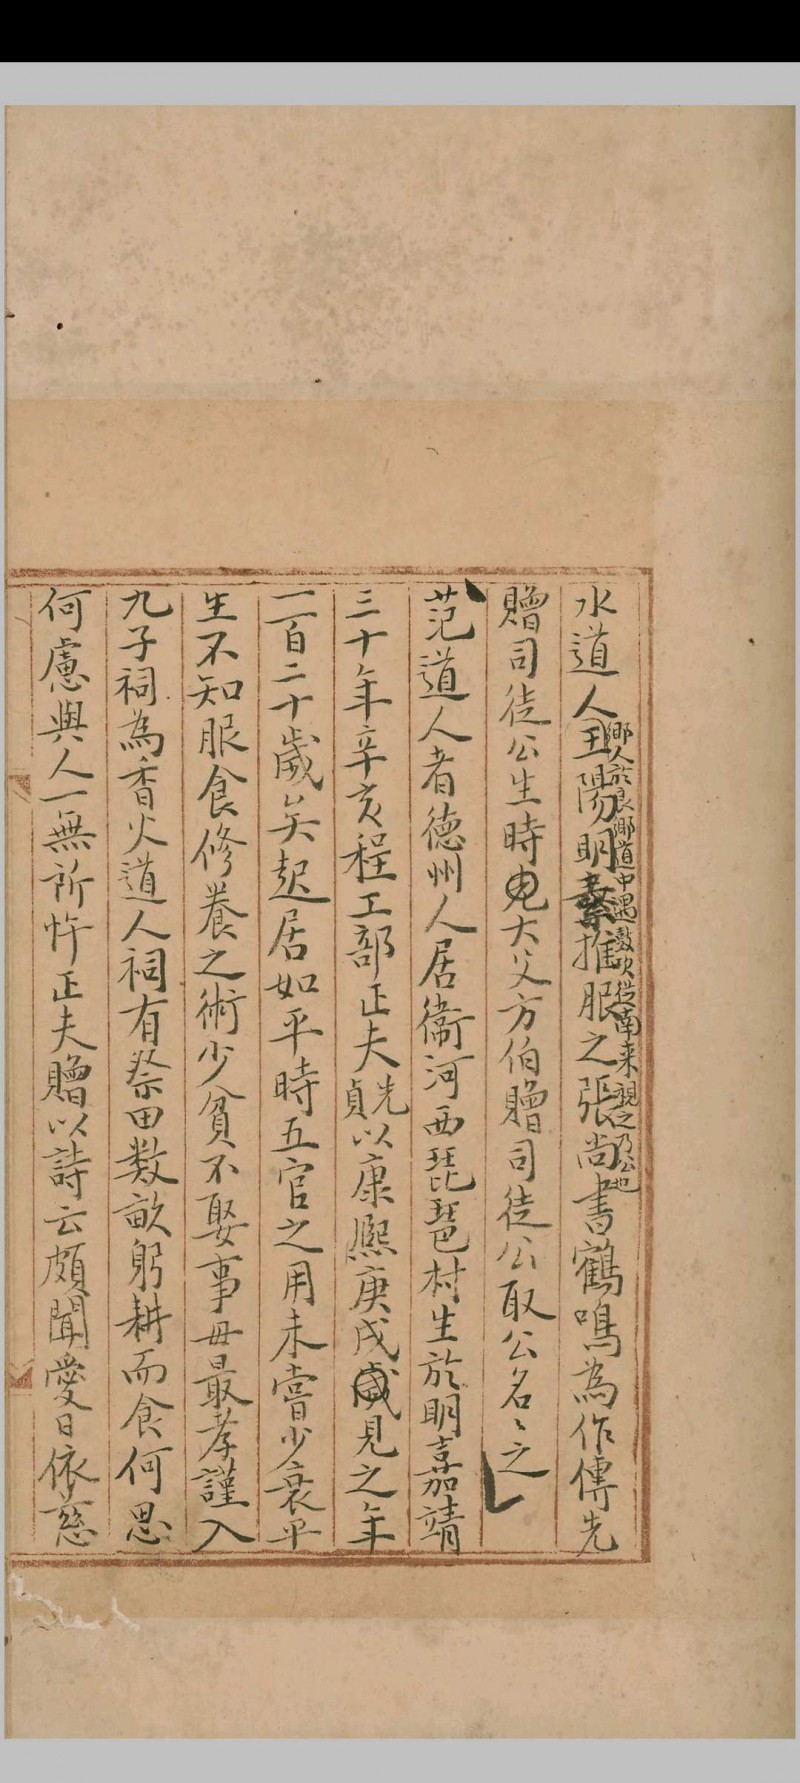 水道人王陽明推服之張尚書鶴鳴為作傳先
鄉人於良鄉道中遇數從南来視之乃公也
贈司徒公生時大父方伯贈司徒公取公名々之
范道人者德州人居衞河西琵琶村生於明嘉靖
三十年辛亥程工部正夫先貞以康熙庚戌歲見之年
一百二十歲矣起居如平時五官之用未嘗少衰平
生不知服食修養之術少貧不娶事母最孝謹入
九子祠為香火道人祠有祭田数畝躬耕而食何思
何慮與人一無所忤正夫贈以詩云頗聞愛日依慈